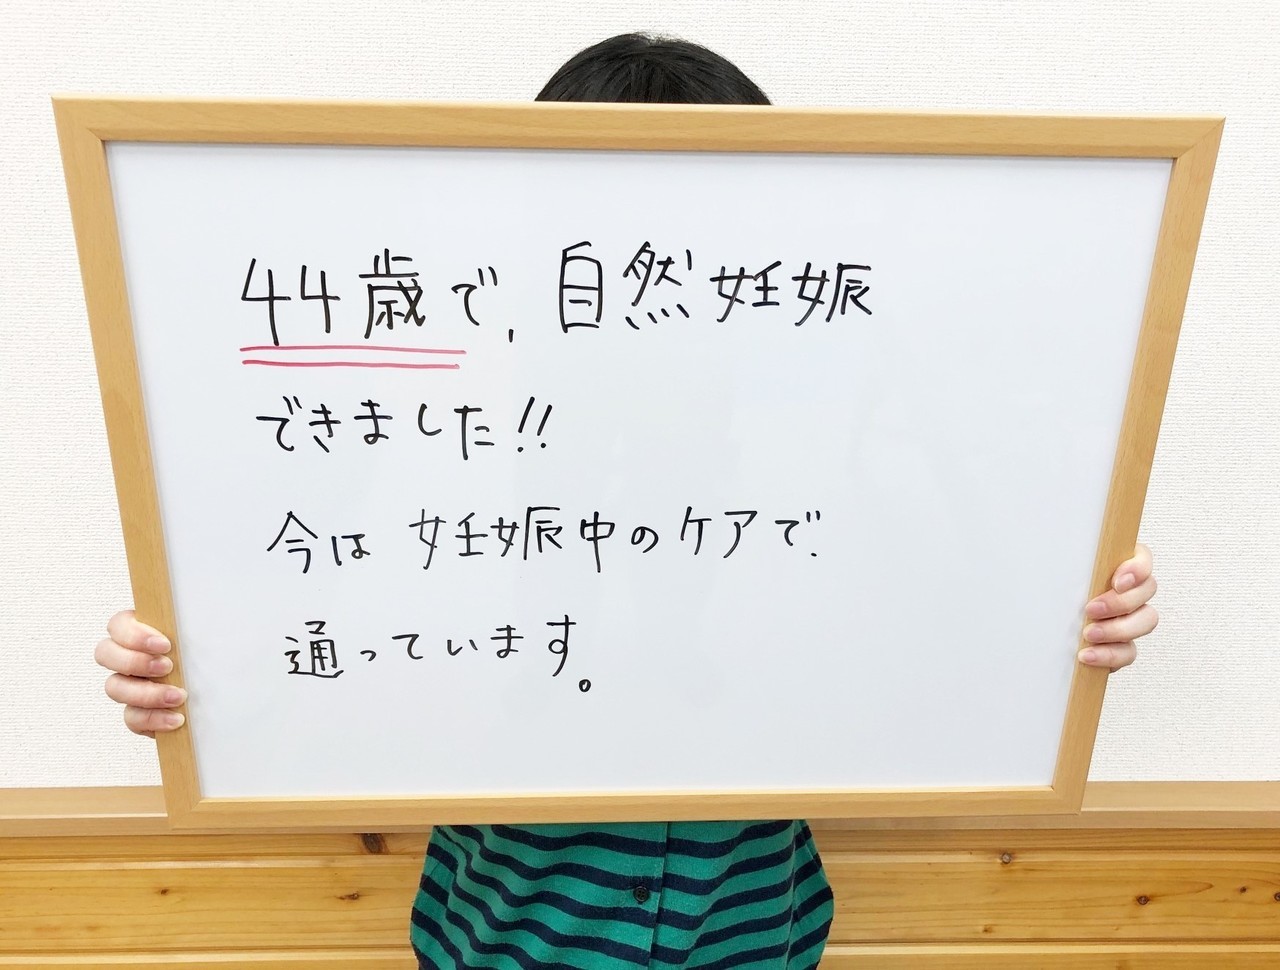 44歳で、自然妊娠
できました!!
今は妊娠中のケアで
通っています。